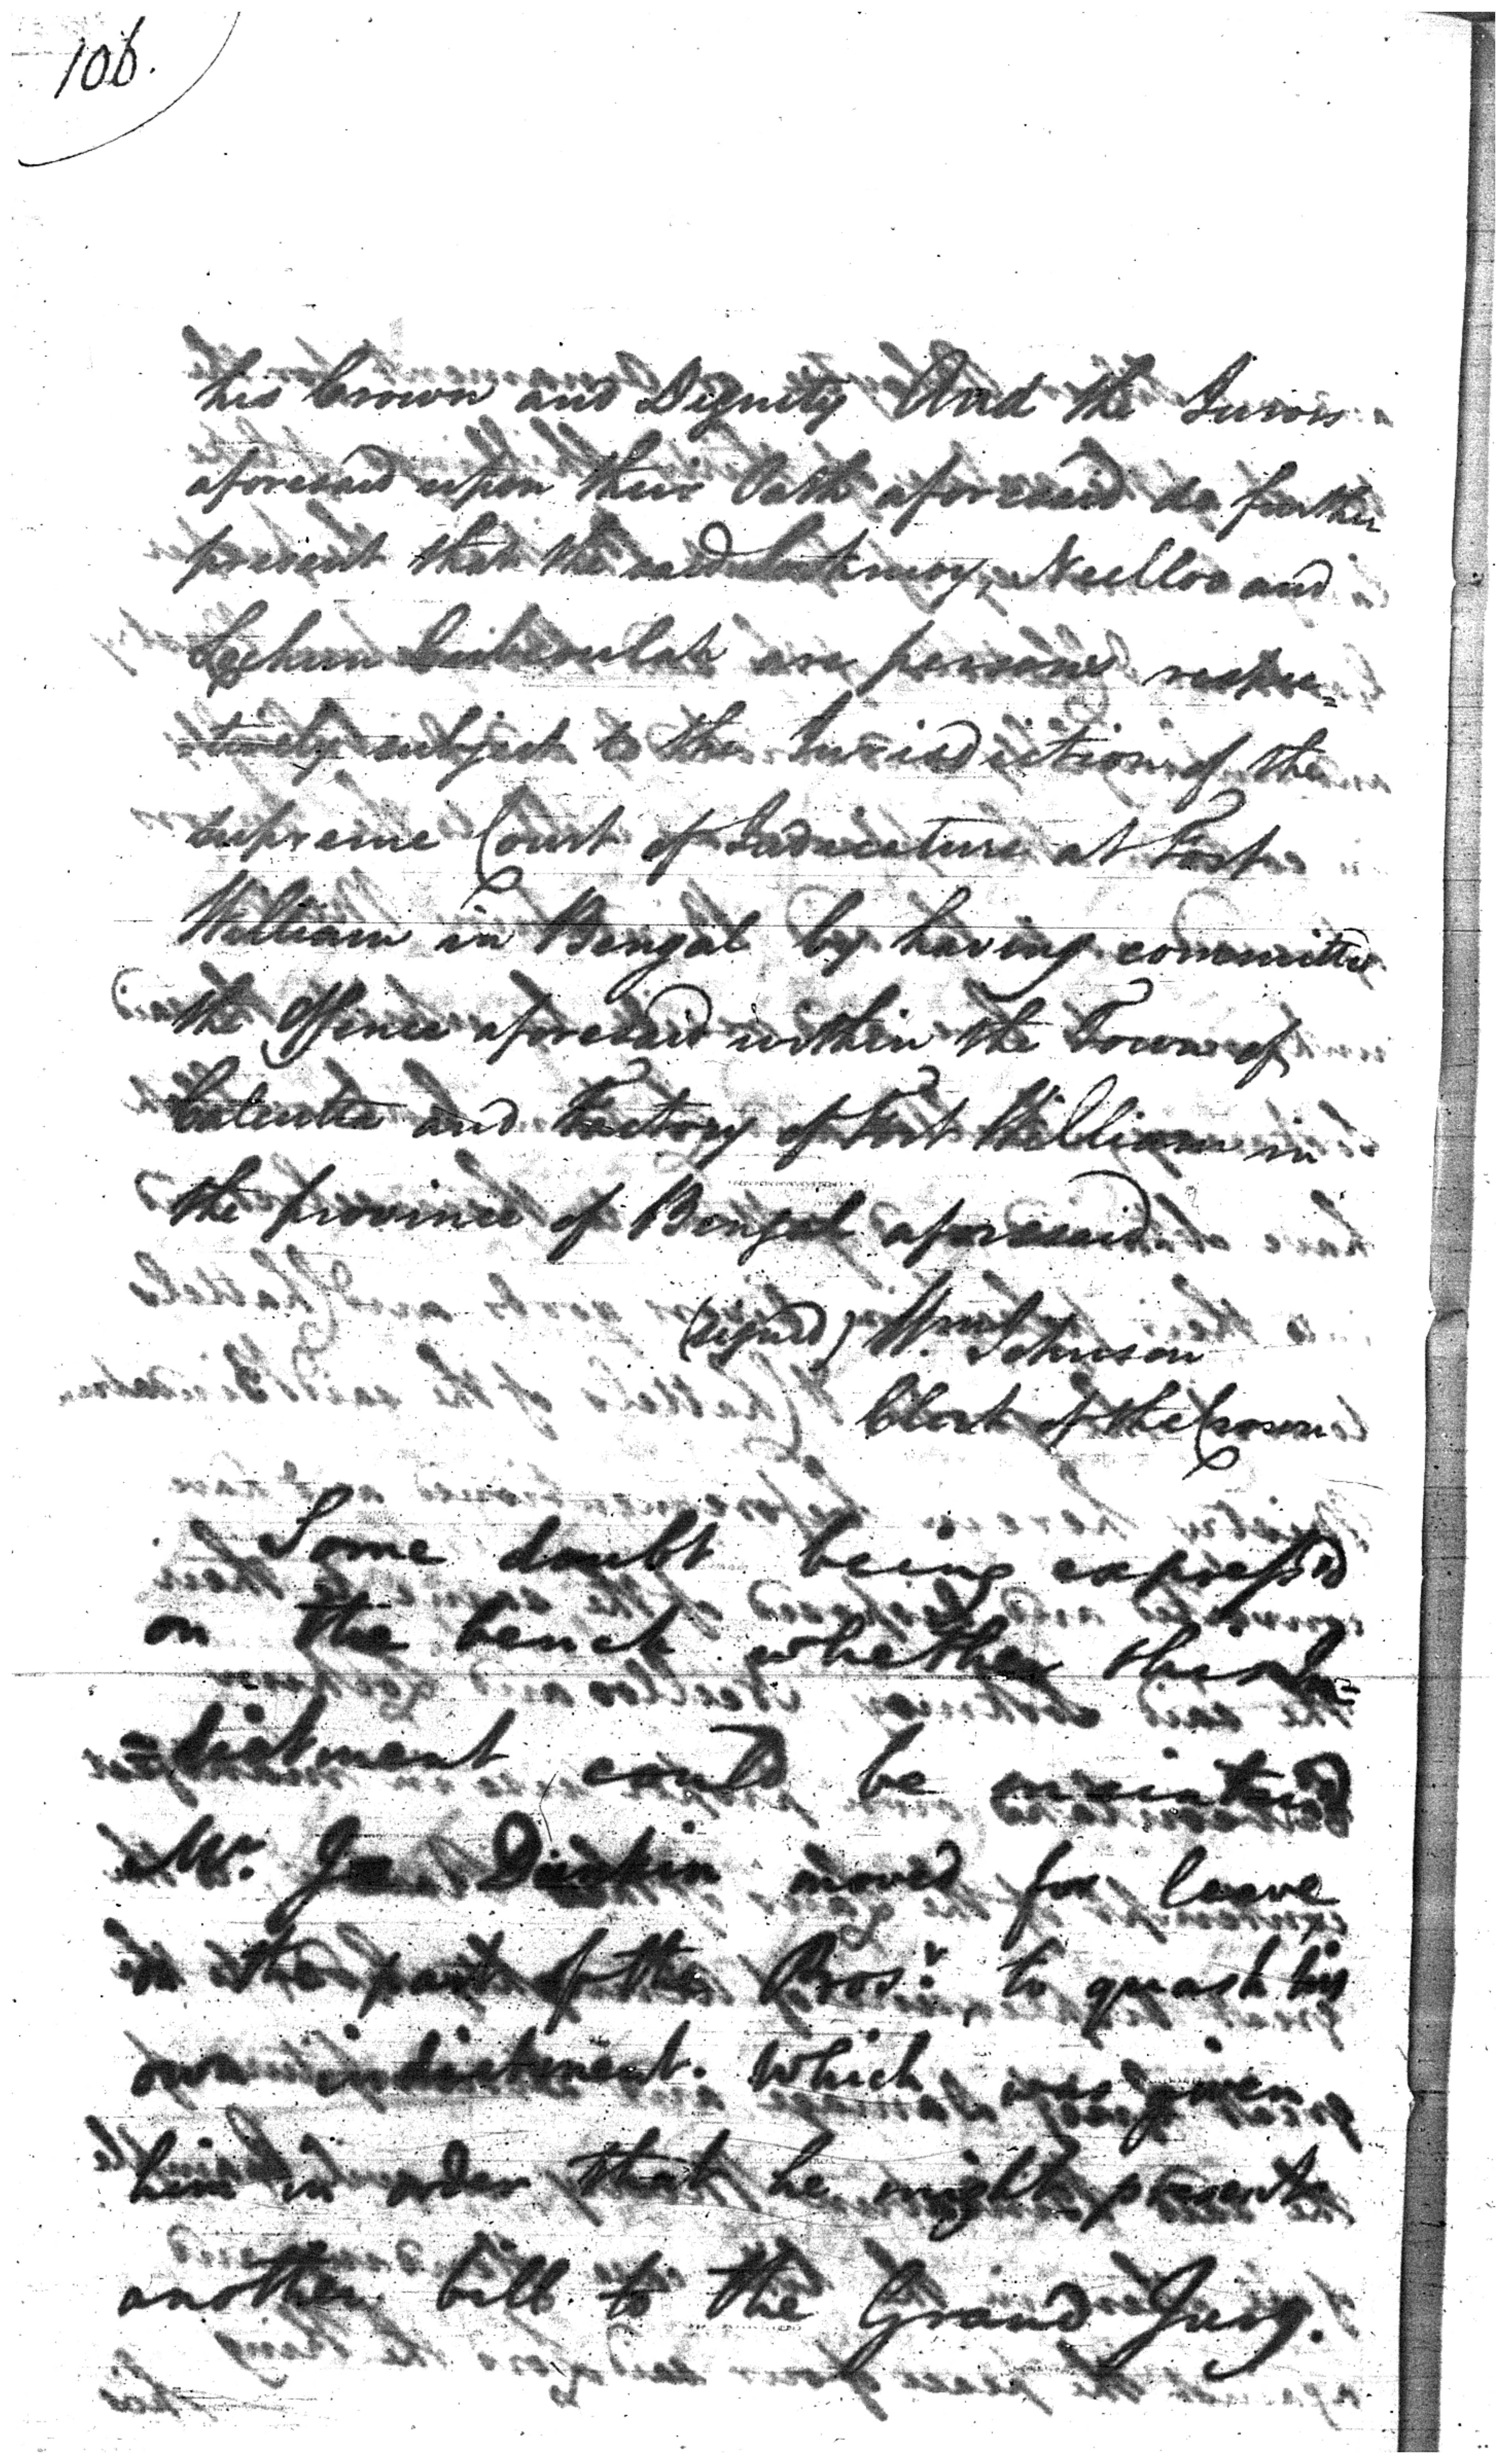 106.
his Crown and Dignity And the Jurors
aforesaid upon their Oath aforesaid do further
present that the said Luckimoy, Neelloo and
Lochun are persons respec=
=tively subject to the Jurisdiction of the
supreme Court of Judicature at Fort
William in Bengal by having committed
the Offence aforesaid within the Town of
Calcutta and Factory of Fort William in
the province of Bengal aforesaid
(signed) Wm. Johnson
Clerk of the Crown
Some doubt being express'd
on the bench whether this In=
=dictment could be maintain'd
Mr. Durkin moved for leave
on the part of the Pros.r to quash his
own indictment. Which was given
him in order that he might present
another bill to the Grand Jury.